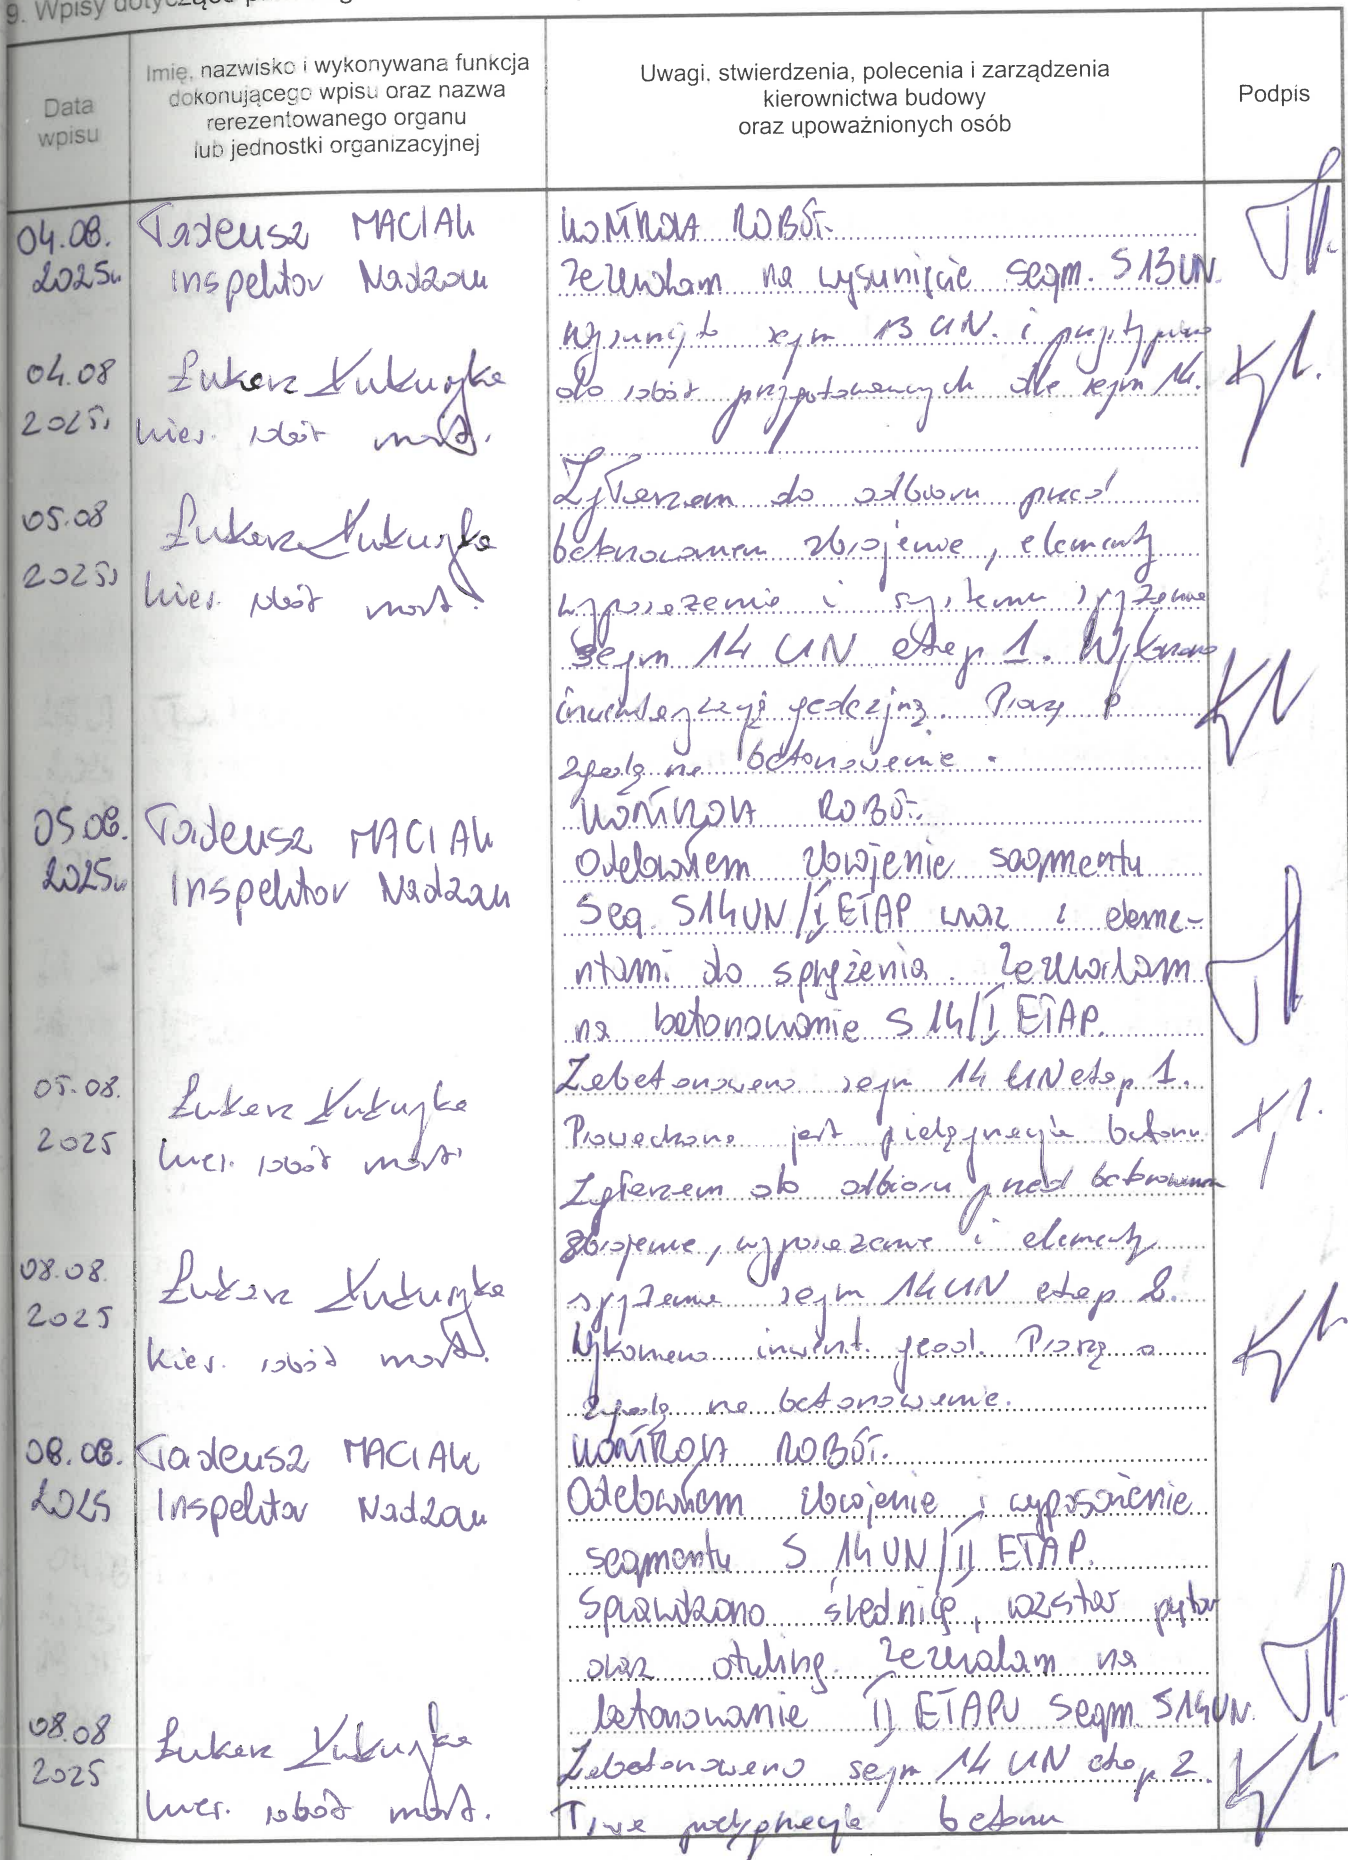 9. Wpisy dotyczące
Data
wpisu
Imię, nazwisko i wykonywana funkcja
dokonującego wpisu oraz nazwa
rerezentowanego organu
lub jednostki organizacyjnej
Uwagi. stwierdzenia, polecenia i zarządzenia
kierownictwa budowy
oraz upoważnionych osób
Podpis
04.08.
2025r
Tadeusz MACIAK
Inspektor Nadzoru
KONTROLA ROBÓT.
Zezwalam na wysunięcie segm. S13UN.
04.08
2025r
Łukasz
kier. robót most.
Wysunięto segm 13 UN. i przystąpiono
do robót przygotowawczych dla segm 14.
05.08
2025r
Łukasz
kier. robót most.
Zgłaszam do odbioru przed
betonowaniem zbrojenie, elementy
wyposażenia i systemu sprężenia
segm 14 UN etap 1. Wykonano
inwentaryzację geodezyjną. Proszę o
zgodę na betonowanie.
05.08.
2025r
Tadeusz MACIAK
Inspektor Nadzoru
KONTROLA ROBÓT.
Odebrałem zbrojenie segmentu
Seg. S14UN/I ETAP wraz z eleme-
ntami do sprężenia. Zezwalam
na betonowanie S14/I ETAP.
05.08.
2025
Łukasz
kier. robót most.
Zabetonowano segm 14 UN etap 1.
Prowadzona jest pielęgnacja betonu
08.08.
2025
Łukasz
kier. robót most.
Zgłaszam do odbioru przed betonowaniem
zbrojenie, wyposażenie i elementy
sprężenia segm 14 UN etap 2.
Wykonano inwent. geod. Proszę o
zgodę na betonowanie.
08.08.
2025
Tadeusz MACIAK
Inspektor Nadzoru
KONTROLA ROBÓT.
Odebrałem zbrojenie i wyposażenie
segmentu S 14UN/II ETAP.
Sprawdzono średnicę, rozstaw prętów
oraz otulinę. Zezwalam na
betonowanie II ETAPU Segm. S14UN.
08.08
2025
Łukasz
kier. robót most.
Zabetonowano segm 14 UN etap 2.
Trwa pielęgnacja betonu